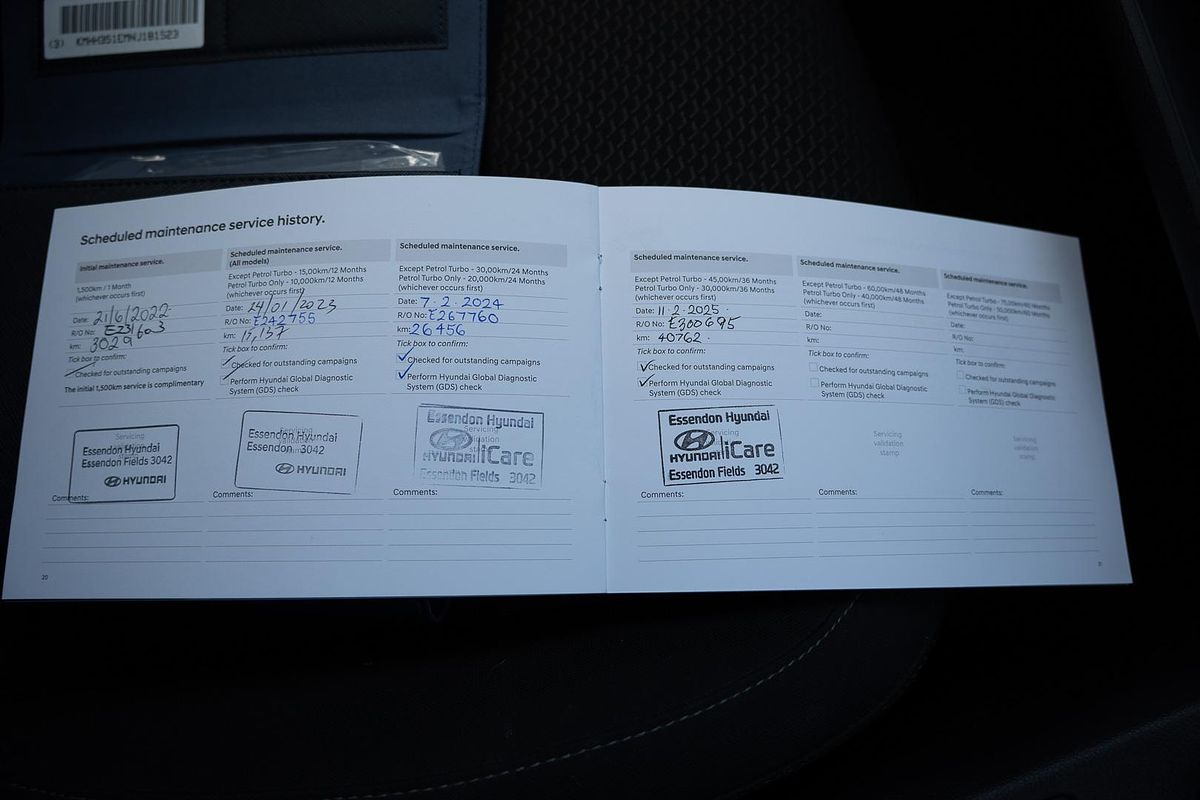 Scheduled maintenance service history.
Initial maintenance service.
1,500km / 1 Month
(whichever occurs first)
Date: 21/6/2022
R/O No: E231603
km: 3029
Tick box to confirm:
Checked for outstanding campaigns
The initial 1,500km service is complimentary
Servicing
Essendon Hyundai
Essendon Fields 3042
HYUNDAI
Comments:
20
Scheduled maintenance service.
(All models)
Except Petrol Turbo - 15,00km/12 Months
Petrol Turbo Only - 10,000km/12 Months
(whichever occurs first)
Date: 24/01/2023
R/O No: E242755
km:
Tick box to confirm:
Checked for outstanding campaigns
Perform Hyundai Global Diagnostic
System (GDS) check
Essendon Hyundai
Essendon 3042
HYUNDAI
Comments:
Scheduled maintenance service.
Except Petrol Turbo - 30,00km/24 Months
Petrol Turbo Only - 20,000km/24 Months
(whichever occurs first)
Date: 7.2.2024
R/O No: E267760
km: 26456
Tick box to confirm:
Checked for outstanding campaigns
Perform Hyundai Global Diagnostic
System (GDS) check
Essendon Hyundai
Servicing
HYUNDAI iCare
Essendon Fields 3042
Comments:
Scheduled maintenance service.
Except Petrol Turbo - 45,00km/36 Months
Petrol Turbo Only - 30,000km/36 Months
(whichever occurs first)
Date: 11.2.2025.
R/O No: E300695
km: 40762.
Tick box to confirm:
Checked for outstanding campaigns
Perform Hyundai Global Diagnostic
System (GDS) check
Essendon Hyundai
Servicing
HYUNDAI iCare
Essendon Fields 3042
Comments:
Scheduled maintenance service.
Except Petrol Turbo - 60,00km/48 Months
Petrol Turbo Only - 40,000km/48 Months
(whichever occurs first)
Date:
R/O No:
km:
Tick box to confirm:
Checked for outstanding campaigns
Perform Hyundai Global Diagnostic
System (GDS) check
Servicing
validation
stamp
Comments:
Scheduled maintenance service.
Except Petrol Turbo - 75,00km/60 Months
Petrol Turbo Only - 50,000km/60 Months
(whichever occurs first)
Date:
R/O No:
km:
Tick box to confirm:
Checked for outstanding campaigns
Perform Hyundai Global Diagnostic
System (GDS) check
Servicing
validation
stamp
Comments: